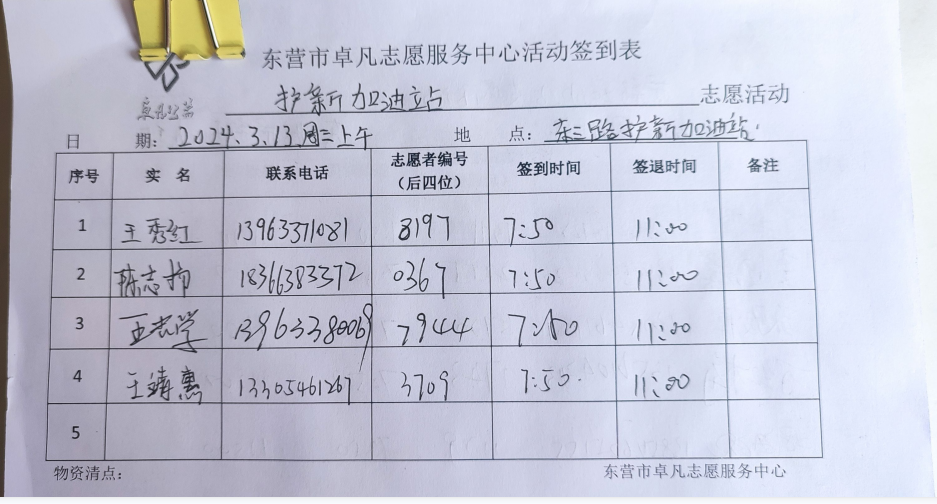 东营市卓凡志愿服务中心活动签到表
卓凡公益
护新加油站 志愿活动
日 期: 2024.3.13.周三上午 地 点: 东三路护新加油站
序号 实名 联系电话 志愿者编号(后四位) 签到时间 签退时间 备注
1 王秀红 13963371081 8197 7:50 11:00
2 陈志 18366383372 0367 7:50 11:00
3 学 13963380069 7944 7:50 11:00
4 王 惠 13305461267 3709 7:50 11:00
5
物资清点: 东营市卓凡志愿服务中心